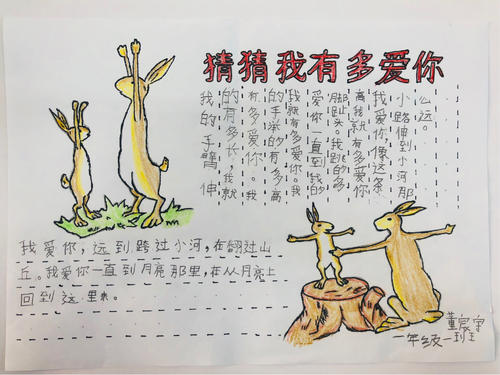 猜猜我有多爱你
我的手臂伸
的有多长,我就
有多爱你。我
的手举的有多高
我就有多爱你。我
爱你一直到我的
脚趾头。我跳的多
高我就有多爱你
我爱你,像这条
小路伸到小河那
么远。
我爱你,远到跨过小河,在翻过山
丘。我爱你一直到月亮那里,在从月亮上
回到这里来。
一年级一班